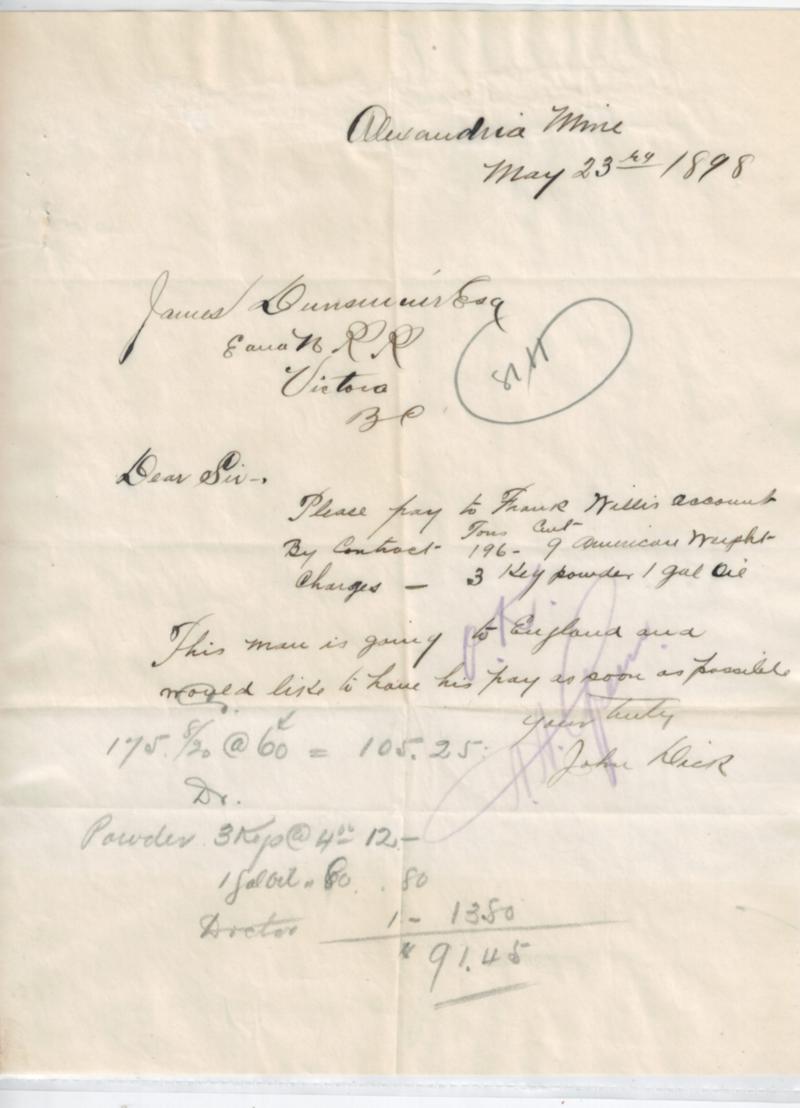 Alexandria Mine
May 23rd 1898
James Dunsmuir Esq
E and N R R
Victoria
B C
Dear Sir-.
Please pay to Frank Willis account
Tons Cwt
By Contract - 196 - 9 American Weight
Charges - 3 Keg powder 1 gal Oil
This man is going to England and
would like to have his pay as soon as possible
Yours truly
John Dick
175. 8/20 @ 60 = 105.25
Dr.
Powder 3 Kegs @ 4 00 12.-
1 Gal Oil " 80 . 80
Doctor 1 - 13.80
" 91.45